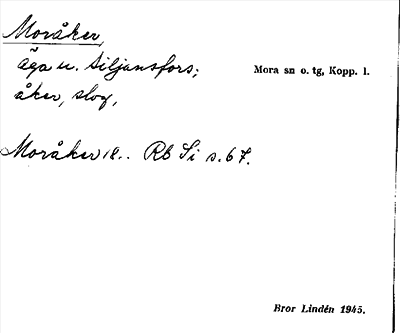 Moråker,
äga u. Siljansfors;
Mora sn o. tg, Kopp. l.
åker, slog,
Moråker 18.. Rb Si s. 67.
Bror Lindén 1945.